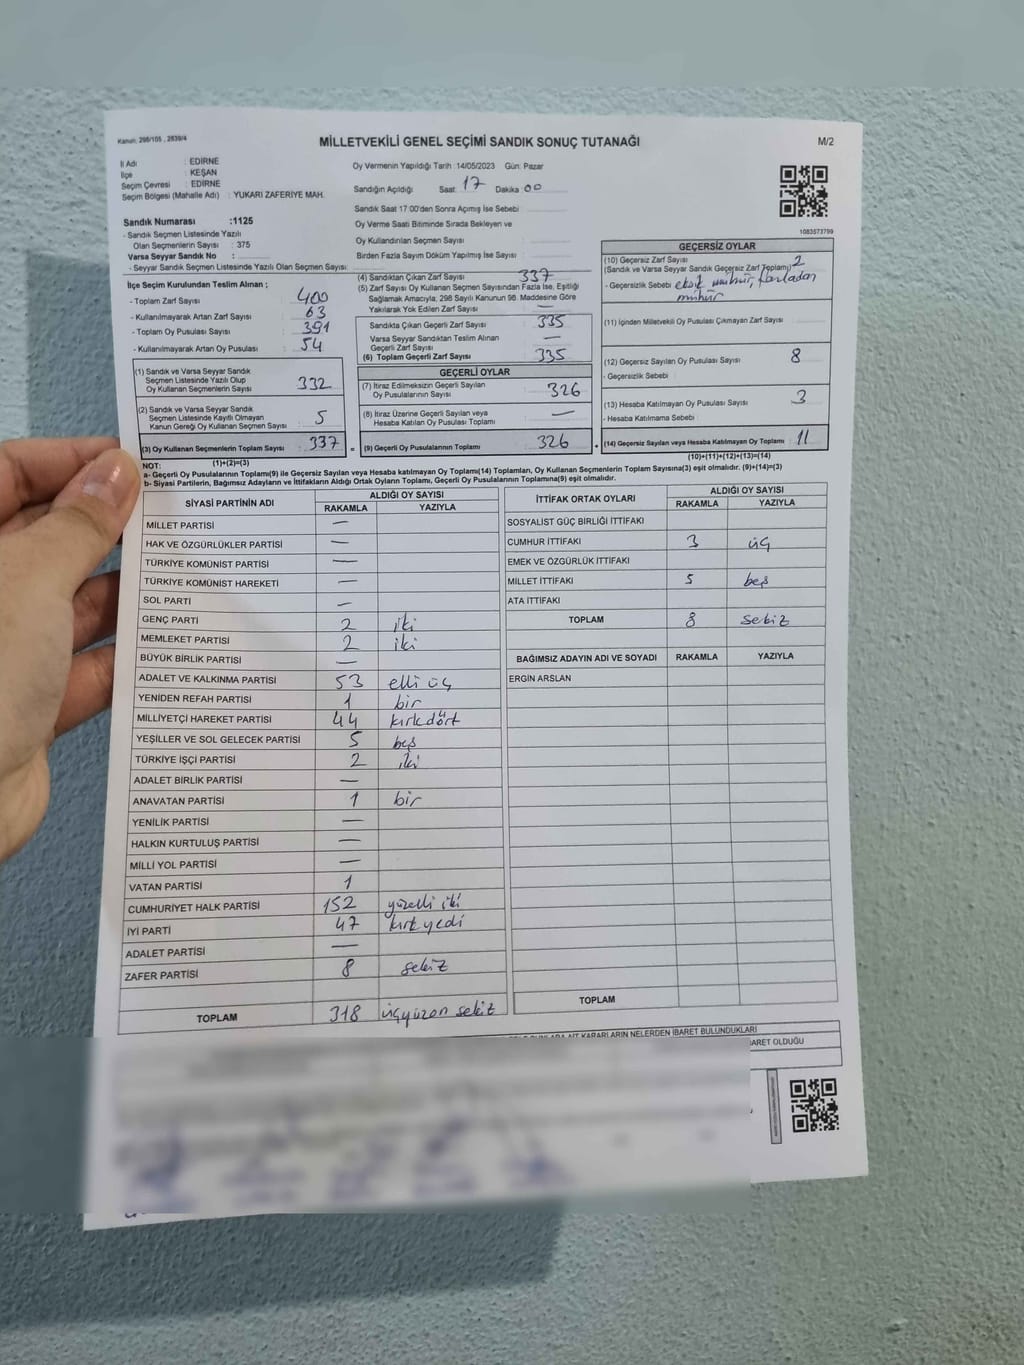 Kanun: 298/105 , 2839/4
MİLLETVEKİLİ GENEL SEÇİMİ SANDIK SONUÇ TUTANAĞI
M/2
İl Adı : EDİRNE
İlçe : KEŞAN
Seçim Çevresi : EDİRNE
Seçim Bölgesi (Mahalle Adı) : YUKARI ZAFERİYE MAH.
Oy Vermenin Yapıldığı Tarih :14/05/2023 Gün: Pazar
Sandığın Açıldığı Saat: 17 Dakika 00
Sandık Saat 17:00'den Sonra Açımış İse Sebebi
Oy Verme Saati Bitiminde Sırada Bekleyen ve
Oy Kullandırılan Seçmen Sayısı :
Birden Fazla Sayım Döküm Yapılmış İse Sayısı :
1083573799
Sandık Numarası :1125
- Sandık Seçmen Listesinde Yazılı
Olan Seçmenlerin Sayısı : 375
Varsa Seyyar Sandık No :
- Seyyar Sandık Seçmen Listesinde Yazılı Olan Seçmen Sayısı:
İlçe Seçim Kurulundan Teslim Alınan ;
- Toplam Zarf Sayısı : 400
- Kullanılmayarak Artan Zarf Sayısı : 63
- Toplam Oy Pusulası Sayısı : 391
- Kullanılmayarak Artan Oy Pusulası : 54
(1) Sandık ve Varsa Seyyar Sandık
Seçmen Listesinde Yazılı Olup
Oy Kullanan Seçmenlerin Sayısı : 332
(2) Sandık ve Varsa Seyyar Sandık
Seçmen Listesinde Kayıtlı Olmayan
Kanun Gereği Oy Kullanan Seçmen Sayısı : 5
(3) Oy Kullanan Seçmenlerin Toplam Sayısı : 337
(1)+(2)=(3)
(4) Sandıktan Çıkan Zarf Sayısı : 337
(5) Zarf Sayısı Oy Kullanan Seçmen Sayısından Fazla İse, Eşitliği
Sağlamak Amacıyla, 298 Sayılı Kanunun 98. Maddesine Göre
Yakılarak Yok Edilen Zarf Sayısı : —
Sandıkta Çıkan Geçerli Zarf Sayısı : 335
Varsa Seyyar Sandıktan Teslim Alınan
Geçerli Zarf Sayısı : —
(6) Toplam Geçerli Zarf Sayısı : 335
GEÇERLİ OYLAR
(7) İtiraz Edilmeksizin Geçerli Sayılan
Oy Pusulalarının Sayısı : 326
(8) İtiraz Üzerine Geçerli Sayılan veya
Hesaba Katılan Oy Pusulası Toplamı : —
= (9) Geçerli Oy Pusulalarının Toplamı : 326
GEÇERSİZ OYLAR
(10) Geçersiz Zarf Sayısı
(Sandık ve Varsa Seyyar Sandık Geçersiz Zarf Toplamı) 2
- Geçersizlik Sebebi : eksik mühür, fazladan
mühür
(11) İçinden Milletvekili Oy Pusulası Çıkmayan Zarf Sayısı
(12) Geçersiz Sayılan Oy Pusulası Sayısı : 8
- Geçersizlik Sebebi :
(13) Hesaba Katılmayan Oy Pusulası Sayısı : 3
- Hesaba Katılmama Sebebi :
+ (14) Geçersiz Sayılan veya Hesaba Katılmayan Oy Toplamı : 11
(10)+(11)+(12)+(13)=(14)
NOT:
a- Geçerli Oy Pusulalarının Toplamı(9) ile Geçersiz Sayılan veya Hesaba katılmayan Oy Toplamı(14) Toplamları, Oy Kullanan Seçmenlerin Toplam Sayısına(3) eşit olmalıdır. (9)+(14)=(3)
b- Siyasi Partilerin, Bağımsız Adayların ve İttifakların Aldığı Ortak Oyların Toplamı, Geçerli Oy Pusulalarının Toplamına(9) eşit olmalıdır.
SİYASİ PARTİNİN ADI ALDIĞI OY SAYISI
RAKAMLA YAZIYLA
MİLLET PARTİSİ —
HAK VE ÖZGÜRLÜKLER PARTİSİ —
TÜRKİYE KOMÜNİST PARTİSİ —
TÜRKİYE KOMÜNİST HAREKETİ —
SOL PARTİ —
GENÇ PARTİ 2 iki
MEMLEKET PARTİSİ 2 iki
BÜYÜK BİRLİK PARTİSİ —
ADALET VE KALKINMA PARTİSİ 53 elli üç
YENİDEN REFAH PARTİSİ 1 bir
MİLLİYETÇİ HAREKET PARTİSİ 44 kırk dört
YEŞİLLER VE SOL GELECEK PARTİSİ 5 beş
TÜRKİYE İŞÇİ PARTİSİ 2 iki
ADALET BİRLİK PARTİSİ —
ANAVATAN PARTİSİ 1 bir
YENİLİK PARTİSİ —
HALKIN KURTULUŞ PARTİSİ —
MİLLİ YOL PARTİSİ —
VATAN PARTİSİ 1
CUMHURİYET HALK PARTİSİ 152 yüzelli iki
İYİ PARTİ 47 kırk yedi
ADALET PARTİSİ —
ZAFER PARTİSİ 8 sekiz
TOPLAM 318 üçyüzon sekiz
İTTİFAK ORTAK OYLARI ALDIĞI OY SAYISI
RAKAMLA YAZIYLA
SOSYALİST GÜÇ BİRLİĞİ İTTİFAKI
CUMHUR İTTİFAKI 3 üç
EMEK VE ÖZGÜRLÜK İTTİFAKI
MİLLET İTTİFAKI 5 beş
ATA İTTİFAKI
TOPLAM 8 sekiz
BAĞIMSIZ ADAYIN ADI VE SOYADI RAKAMLA YAZIYLA
ERGİN ARSLAN
TOPLAM
KARARLARIN NELERDEN İBARET BULUNDUKLARI
OLDUĞU